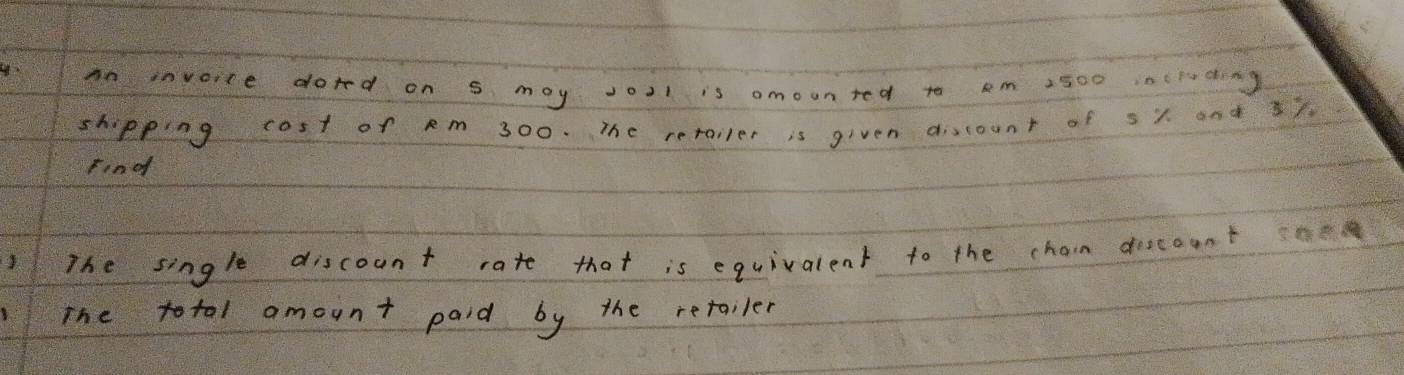 4. An invoice dated on 5 may 2021 is amounted to RM 2500 including
shipping cost of RM 300. The retailer is given discount of 5% and 3%.
Find
) The single discount rate that is equivalent to the chain discount
) The total amount paid by the retailer